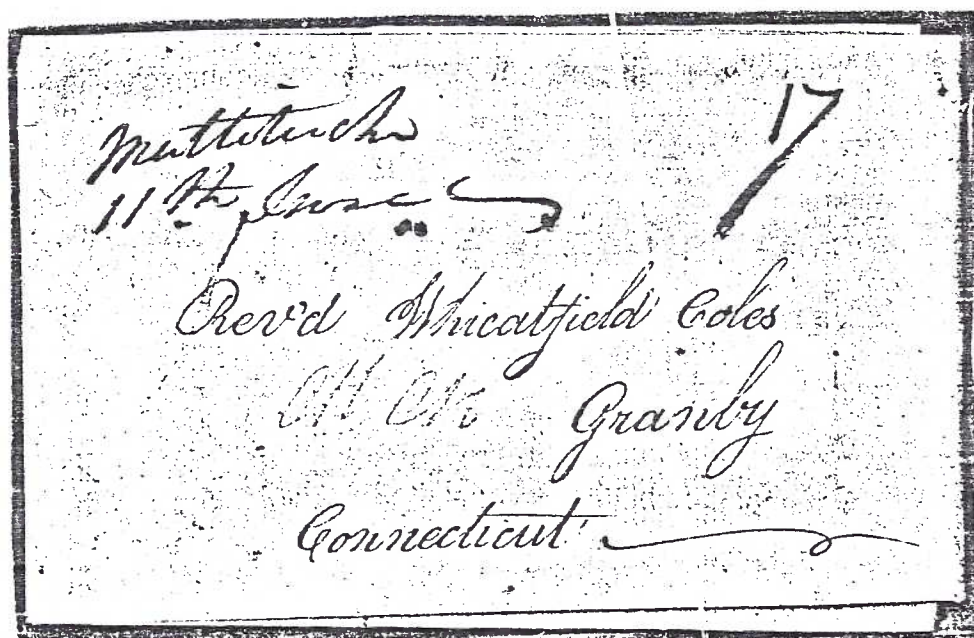 Mattituck 17
11th June
Rev'd Wheatfield Coles
Granby
Connecticut